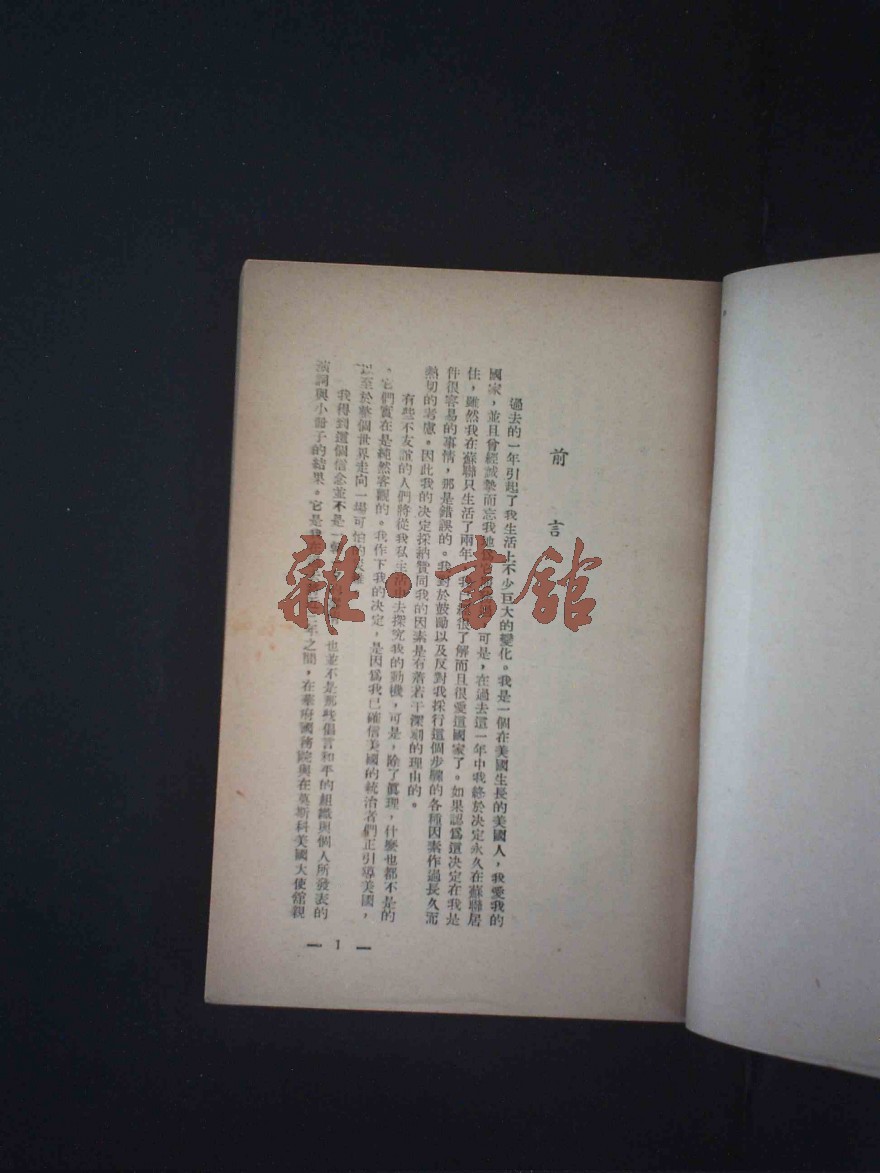 前言
過去的一年引起了我生活上不少巨大的變化。我是一個在美國生長的美國人，我愛我的
國家，並且曾經誠摯而忘我地 可是，在過去這一年中我終於決定永久在蘇聯居
住，雖然我在蘇聯只生活了兩年 我已經很了解而且很愛這國家了。如果認爲這決定在我是
件很容易的事情，那是錯誤的。我對於鼓勵以及反對我採行這個步驟的各種因素作過長久而
熱切的考慮。因此我的決定採納贊同我的因素是有着若干深刻的理由的。
有些不友誼的人們將從我私生活中去探究我的動機，可是，除了眞理，什麼也都不是的
。它們實在是純然客觀的。我作下我的決定，是因爲我已確信美國的統治者們正引導美國，
至於整個世界走向一場可怕的
我得到這個信念並不是 也並不是那些倡言和平的組織與個人所發表的
演詞與小冊子的結果。它是我在 年之間，在華府國務院與在莫斯科美國大使館親
— 1 —
雜·書館